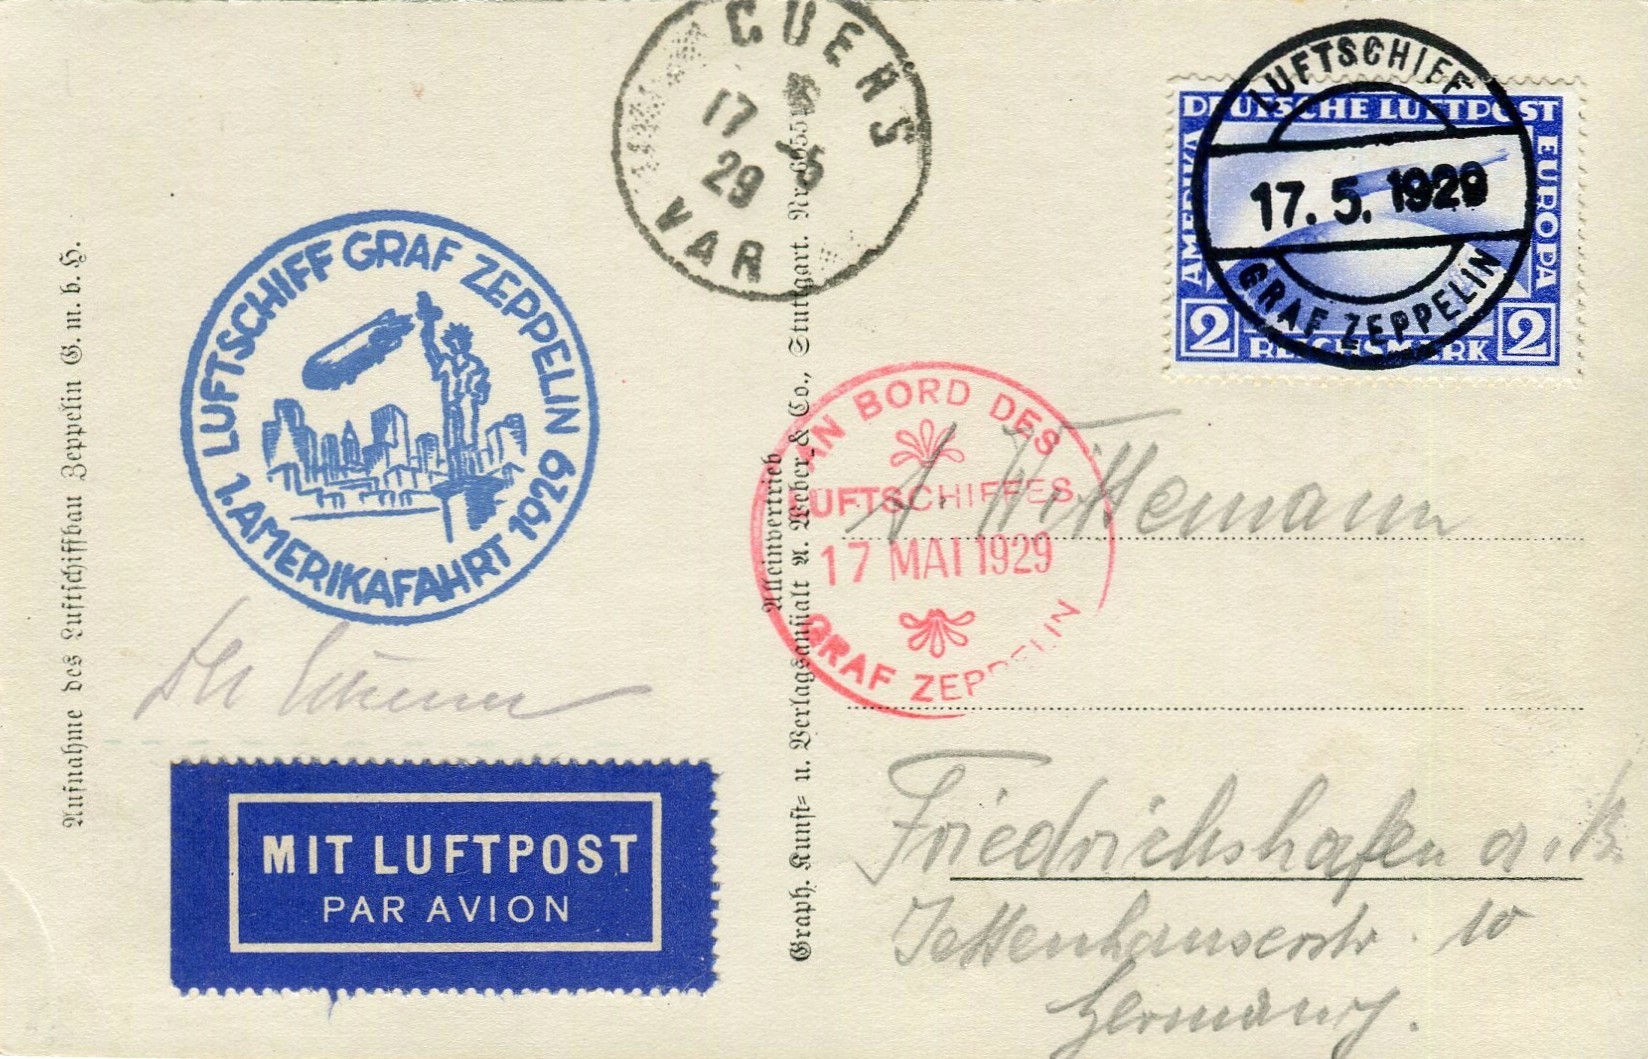 CUERS
17 5
29
VAR
LUFTSCHIFF
17. 5. 1929
GRAF ZEPPELIN
DEUTSCHE LUFTPOST
AMERIKA
EUROPA
2 REICHSMARK 2
LUFTSCHIFF GRAF ZEPPELIN
1. AMERIKAFAHRT 1929
AN BORD DES
LUFTSCHIFFES
17 MAI 1929
GRAF ZEPPELIN
A. Wittemann
Friedrichshafen a. B.
Jettenhauserstr. 10
Germany.
MIT LUFTPOST
PAR AVION
Aufnahme des Luftschiffbau Zeppelin G. m. b. H.
Alleinvertrieb
Graph. Kunst= u. Verlagsanstalt A. Weber & Co., Stuttgart. Nr.